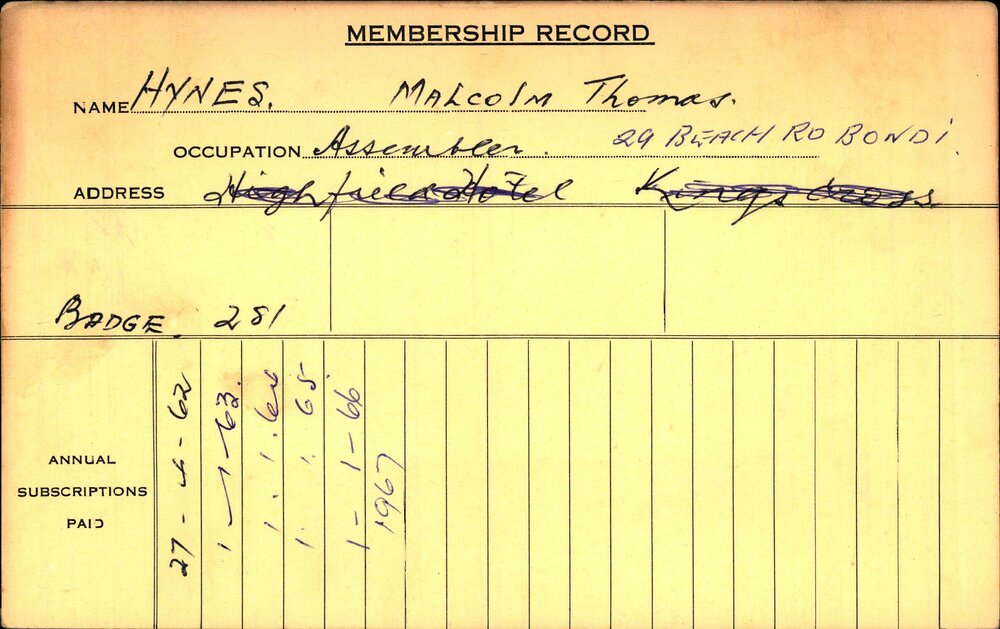 MEMBERSHIP RECORD
NAME HYNES. Malcolm Thomas.
OCCUPATION Assembler. 29 BEACH RD BONDI.
ADDRESS Highfield Hotel Kings Cross.
BADGE. 281
ANNUAL
SUBSCRIPTIONS
PAID
27-4-62
1-1-63.
1.1.64
1.1.65.
1-1-66
1967